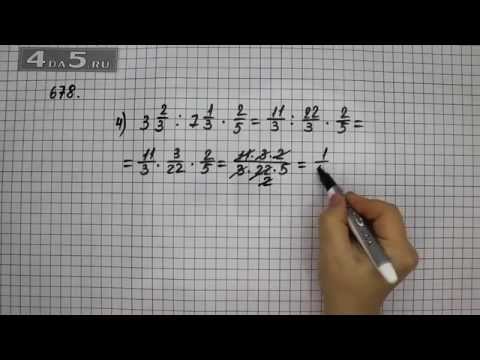 4DA5.RU
678.
4) 3 2/3 : 7 1/3 · 2/5 = 11/3 : 22/3 · 2/5 =
= 11/3 · 3/22 · 2/5 = 11·3·2/3·22·5 = 1/
2